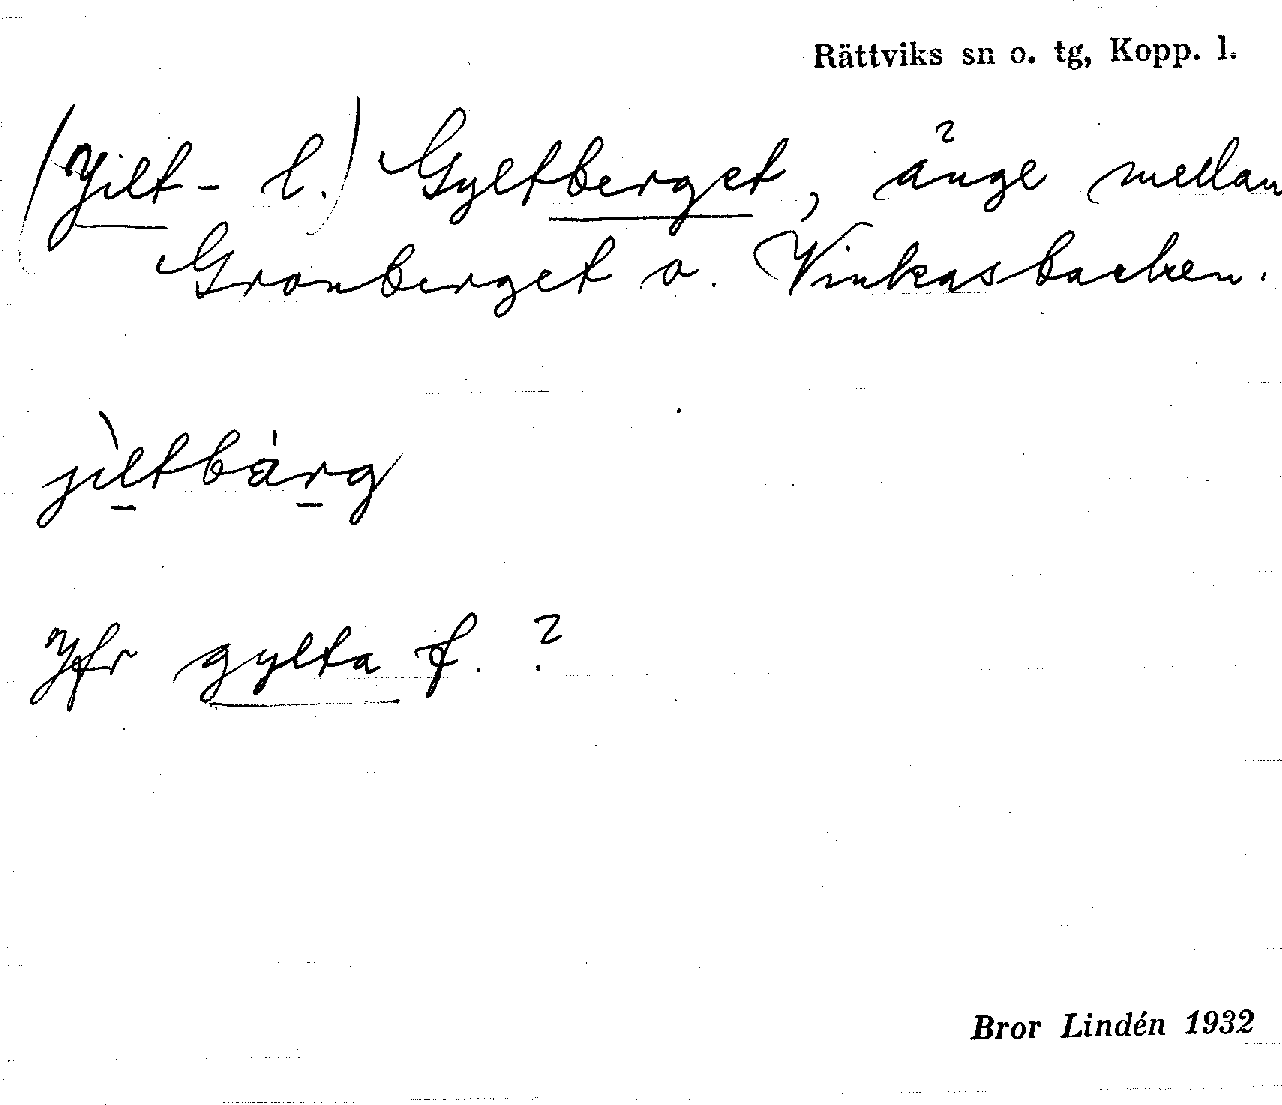 Rättviks sn o. tg, Kopp. l.
(Jilt- l.) Gyltberget, änge mellan
Granberget o. Vinkasbacken.
jìltbàrg
Jfr gylta f. ?
Bror Lindén 1932